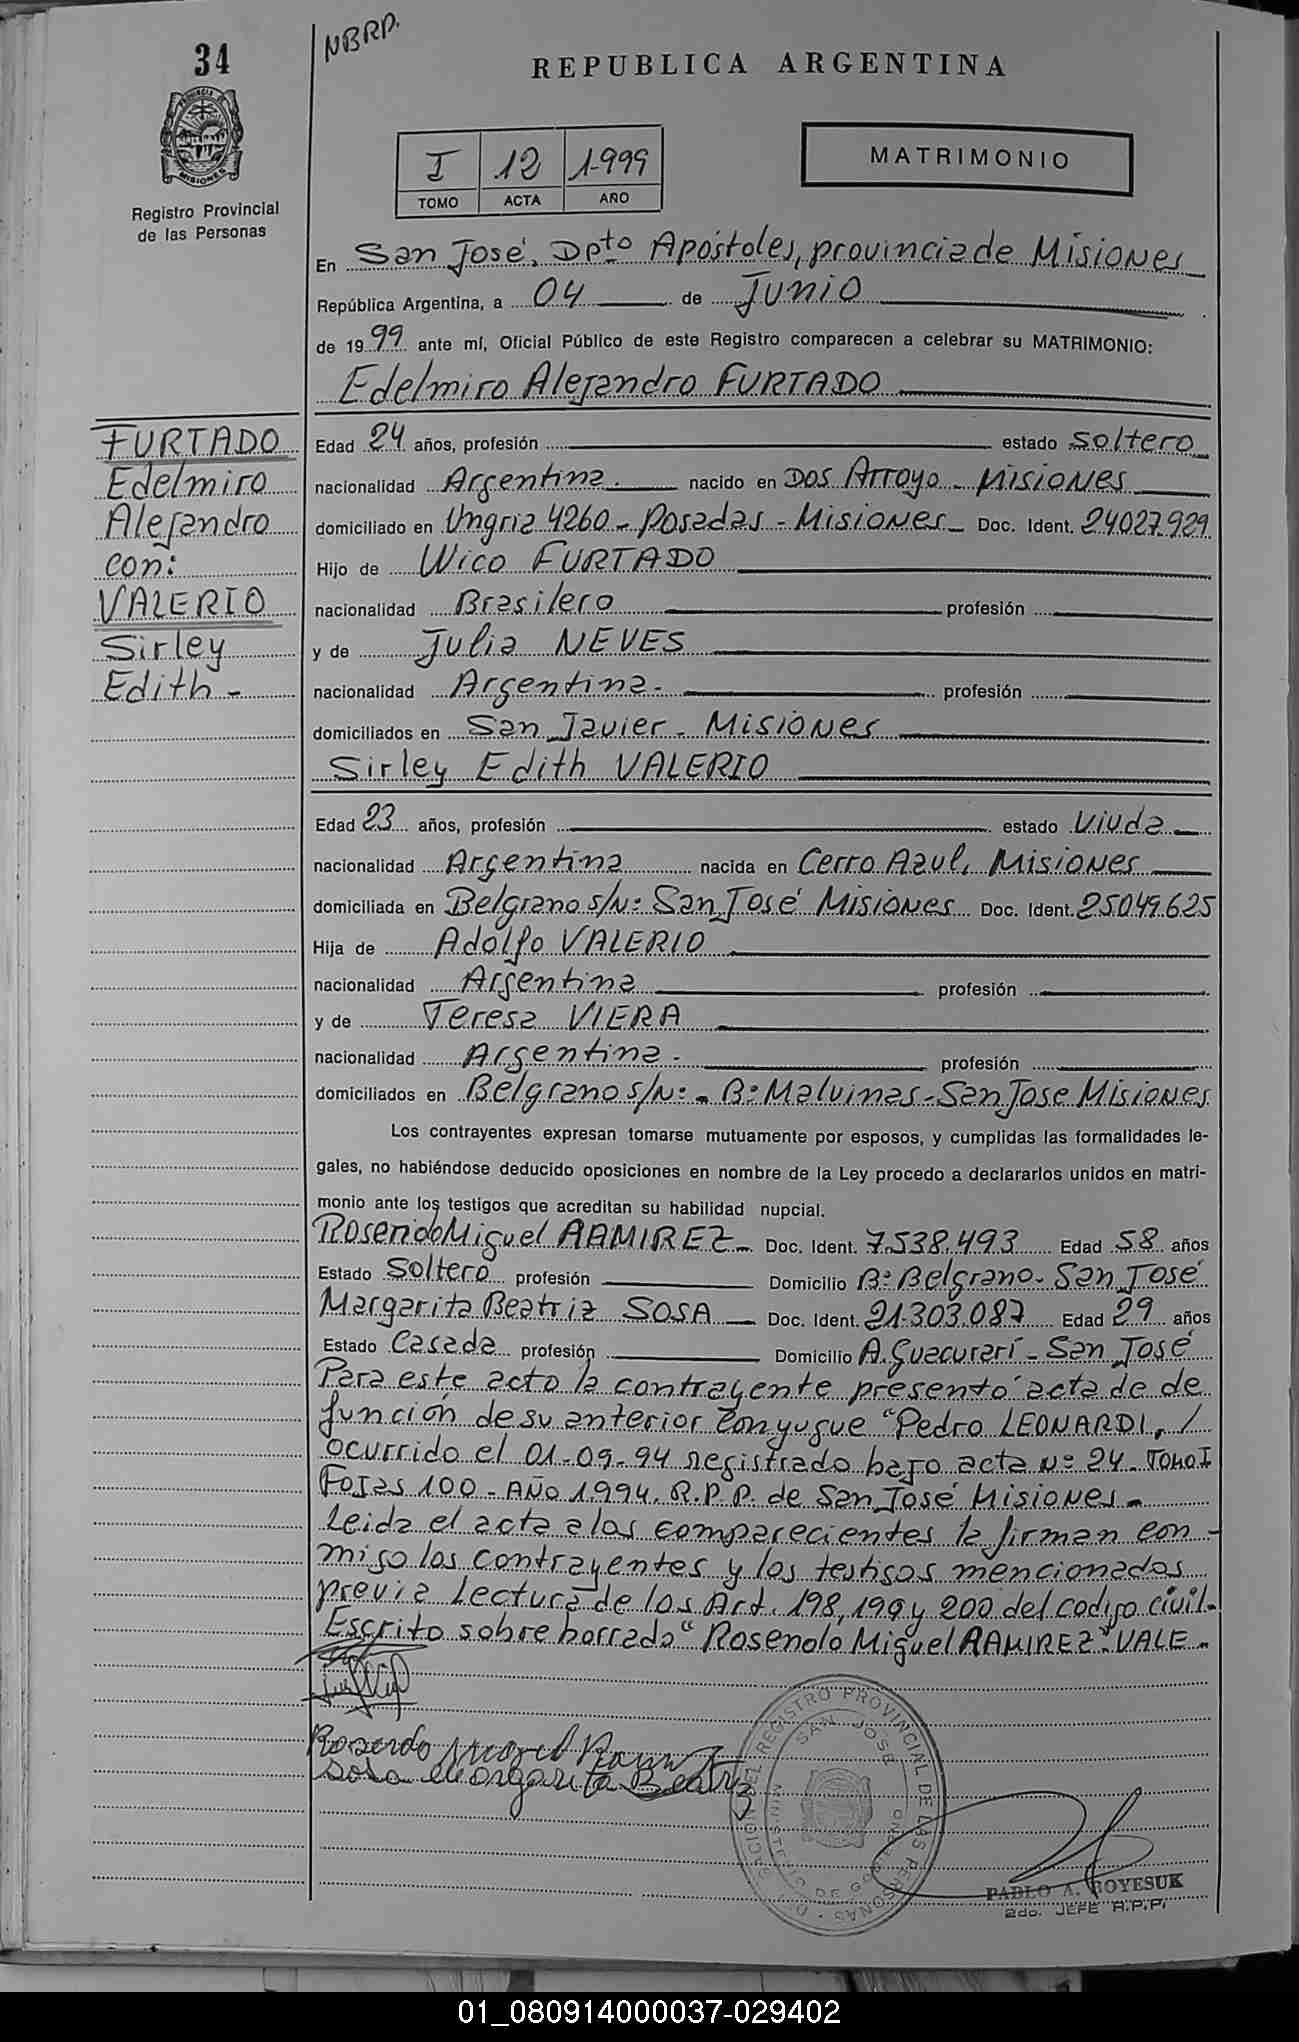 34
NBRP.
REPUBLICA ARGENTINA
PROVINCIA DE
MISIONES
Registro Provincial
de las Personas
I 12 1.999
TOMO ACTA AÑO
MATRIMONIO
En San José. Dpto Apóstoles, provincia de Misiones
República Argentina, a 04 de Junio
de 1999 ante mí, Oficial Público de este Registro comparecen a celebrar su MATRIMONIO:
Edelmiro Alejandro FURTADO
FURTADO
Edelmiro
Alejandro
con:
VALERIO
Sirley
Edith-
Edad 24 años, profesión estado soltero
nacionalidad Argentina. nacido en Dos Arroyo - Misiones
domiciliado en Ungria 4260 - Posadas - Misiones - Doc. Ident. 24027.929
Hijo de Wico FURTADO
nacionalidad Brasilero profesión
y de Julia NEVES
nacionalidad Argentina. profesión
domiciliados en San Javier - Misiones
Sirley Edith VALERIO
Edad 23 años, profesión estado Viuda
nacionalidad Argentina nacida en Cerro Azul, Misiones
domiciliada en Belgrano s/Nº San José Misiones Doc. Ident. 25049.625
Hija de Adolfo VALERIO
nacionalidad Argentina profesión
y de Teresa VIERA
nacionalidad Argentina. profesión
domiciliados en Belgrano s/Nº - Bº Malvinas - San Jose Misiones
Los contrayentes expresan tomarse mutuamente por esposos, y cumplidas las formalidades le-
gales, no habiéndose deducido oposiciones en nombre de la Ley procedo a declararlos unidos en matri-
monio ante los testigos que acreditan su habilidad nupcial.
Rosendo Miguel RAMIREZ - Doc. Ident. 7.538.493 Edad 58 años
Estado Soltero profesión Domicilio Bº Belgrano - San José
Margarita Beatriz SOSA Doc. Ident. 21.303.087 Edad 29 años
Estado Casada profesión Domicilio A. Guacurarí - San José
Para este acto la contrayente presentó acta de de
función de su anterior conyugue "Pedro LEONARDI, /
ocurrido el 01-09-94 registrado bajo acta Nº 24 - Tomo I
Fojas 100 - Año 1.994. R.P.P. de San José Misiones -
Leida el acta a los comparecientes la firman con-
migo los contrayentes y los testigos mencionados
previa Lectura de los Art. 198, 199 y 200 del codigo civil.
Escrito sobre borrado "Rosendo Miguel RAMIREZ" VALE -
Rosendo Miguel Ramirez
Sosa Margarita Beatriz
REGISTRO PROVINCIAL DE LAS PERSONAS
SAN JOSE
PABLO A. BOYESUK
2do. JEFE R.P.P.
01_080914000037-029402